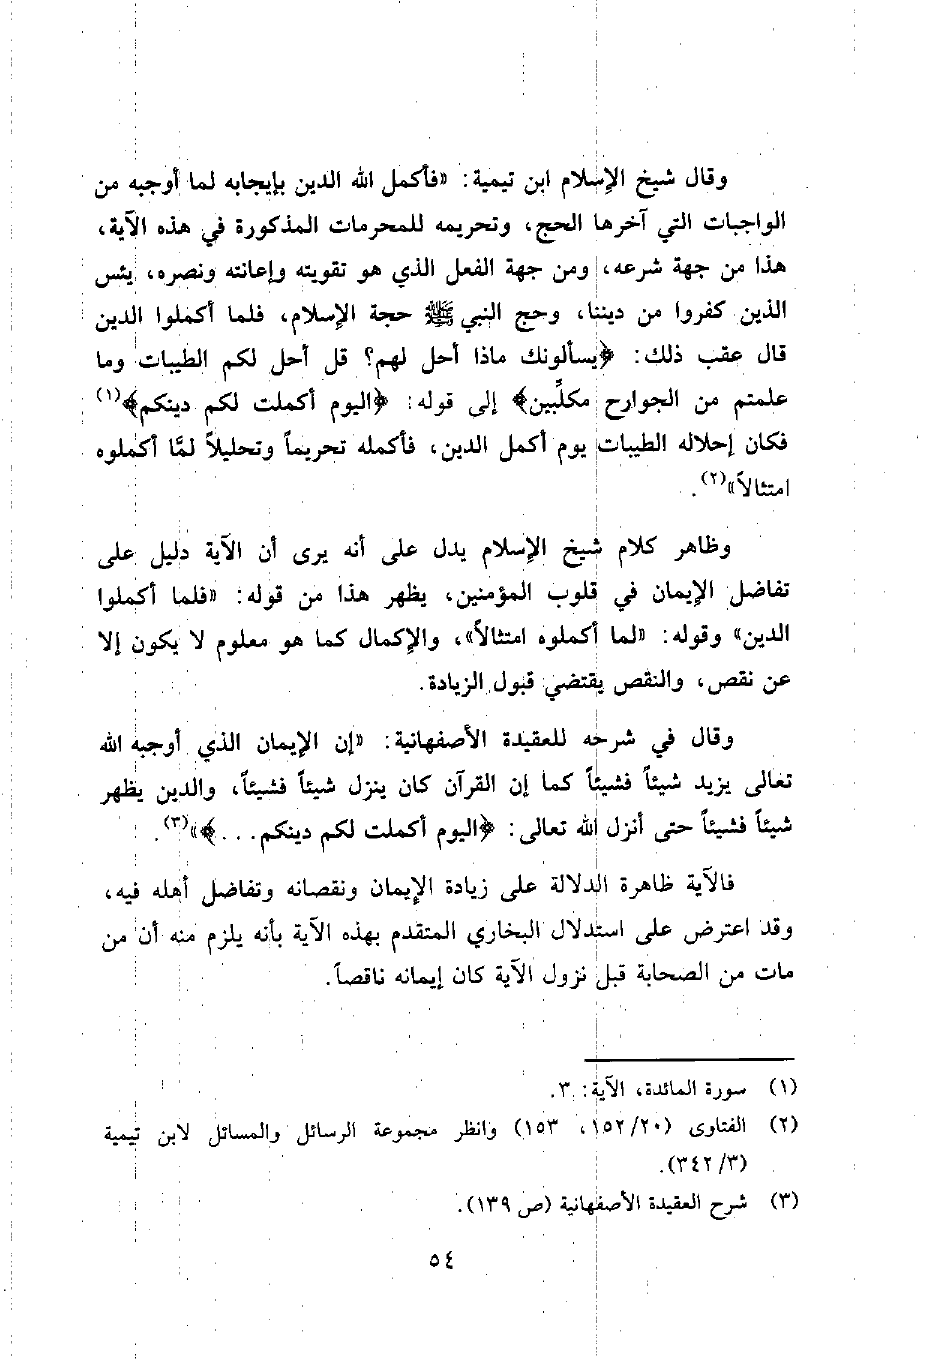 وقال شيخ الإسلام ابن تيمية: «فأكمل الله الدين بإيجابه لما أوجبه من
الواجبات التي آخرها الحج، وتحريمه للمحرمات المذكورة في هذه الآية،
هذا من جهة شرعه، ومن جهة الفعل الذي هو تقويته وإعانته ونصره، يئس
الذين كفروا من ديننا، وحج النبي ﷺ حجة الإسلام، فلما أكملوا الدين
قال عقب ذلك: ﴿يسألونك ماذا أحل لهم؟ قل أحل لكم الطيبات وما
علمتم من الجوارح مكلِّبين﴾ إلى قوله: ﴿اليوم أكملت لكم دينكم﴾(١)
فكان إحلاله الطيبات يوم أكمل الدين، فأكمله تحريماً وتحليلاً لمَّا أكملوه
امتثالاً»(٢).
وظاهر كلام شيخ الإسلام يدل على أنه يرى أن الآية دليل على
تفاضل الإيمان في قلوب المؤمنين، يظهر هذا من قوله: «فلما أكملوا
الدين» وقوله: «لما أكملوه امتثالاً»، والإكمال كما هو معلوم لا يكون إلا
عن نقص، والنقص يقتضي قبول الزيادة.
وقال في شرحه للعقيدة الأصفهانية: «إن الإيمان الذي أوجبه الله
تعالى يزيد شيئاً فشيئاً كما إن القرآن كان ينزل شيئاً فشيئاً، والدين يظهر
شيئاً فشيئاً حتى أنزل الله تعالى: ﴿اليوم أكملت لكم دينكم. . . ﴾»(٣).
فالآية ظاهرة الدلالة على زيادة الإيمان ونقصانه وتفاضل أهله فيه،
وقد اعترض على استدلال البخاري المتقدم بهذه الآية بأنه يلزم منه أن من
مات من الصحابة قبل نزول الآية كان إيمانه ناقصاً.
(١) سورة المائدة، الآية: ٣.
(٢) الفتاوى (١٥٢/٢٠، ١٥٣) وانظر مجموعة الرسائل والمسائل لابن تيمية
(٣٤٢/٣).
(٣) شرح العقيدة الأصفهانية (ص ١٣٩).
٥٤